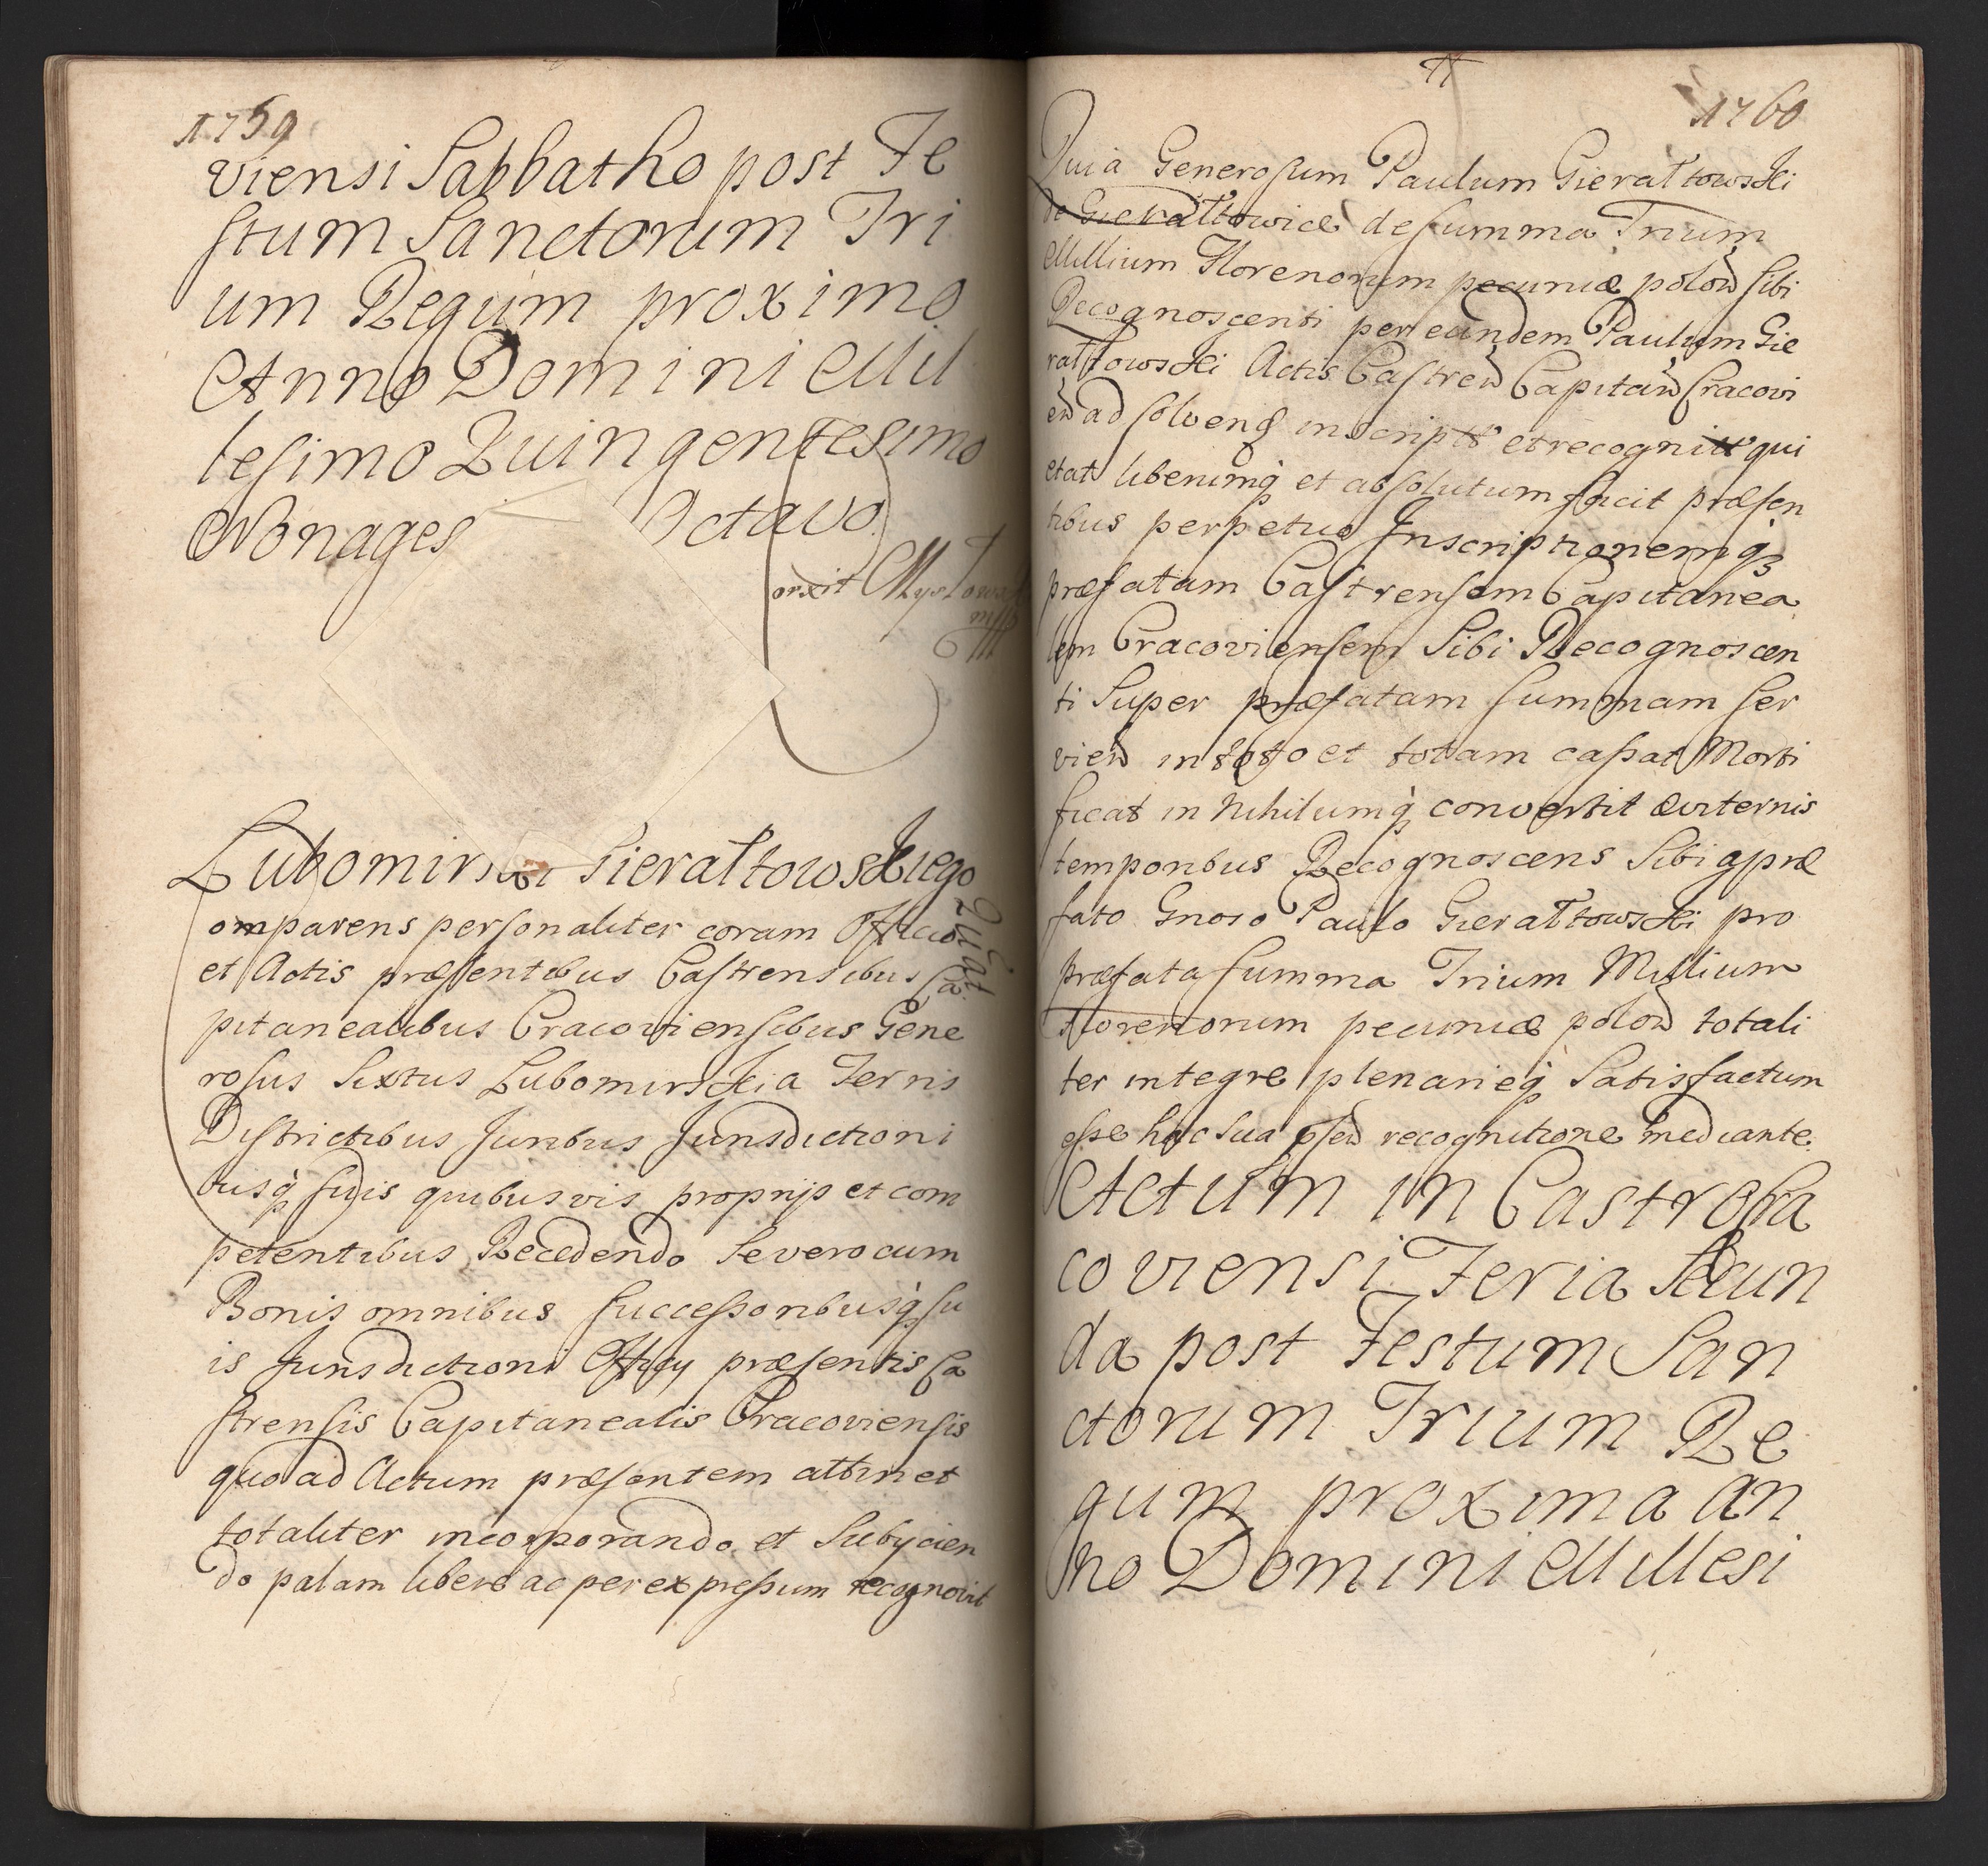 1759
viensi Sabbatho post Fe
stum Sanctorum Tri
um Regum proximo
Anno Domini Mil
lesimo Quingentesimo
Nonages Octavo
orxit
Lubomirski Gierałtowskiego
Quiet
omparens personaliter coram Officio
et Actis præsentibus Castrensibus Ca
pitanealibus Cracoviensibus Gene
rosus Sixtus Lubomirskia Terris
Districtibus Juribus Jurisdictioni
busq suis quibusvis proprijs et com
petentibus Recedendo Severo cum
Bonis omnibus successoribusq su
is Jurisdictioni Officij præsentis Ca
strensis Capitanealis Cracoviensis
quo ad Actum præsentem attinet
totaliter incorporando et Subijcien
do palam libere ac per expressum recognovit
1760
Quia Generosum Paulum Gierałtowski
de Gierałtowice de summa Trium
Millium Florenorum pecuniæ polon Sibi
Recognoscenti per eundem Paulum Gie
rałtowski Actis Castren Capitan Cracovi
en ad solvend inscript et recognit qui
etat liberumq et absolutum facit præsen
tibus perpetuo Inscriptionemq
præfatam Castrensem Capitanea
lem Cracoviensem Sibi Recognoscen
ti Super præfatam summam ser
vien in toto et totam cassat Morti
ficat in Nihilumq convertit æviternis
temporibus Recognoscens Sibi a præ
fato Gnoso Paulo Gierałtowski pro
præfata summa Trium Millium
Florenorum pecuniæ polon totali
ter integre plenarieq Satisfactum
esse hac sua pssen recognitione mediante
Actum in Castro Cra
coviensi Feria Secun
da post Festum San
ctorum Trium Re
gum proxima An
no Domini Millesi